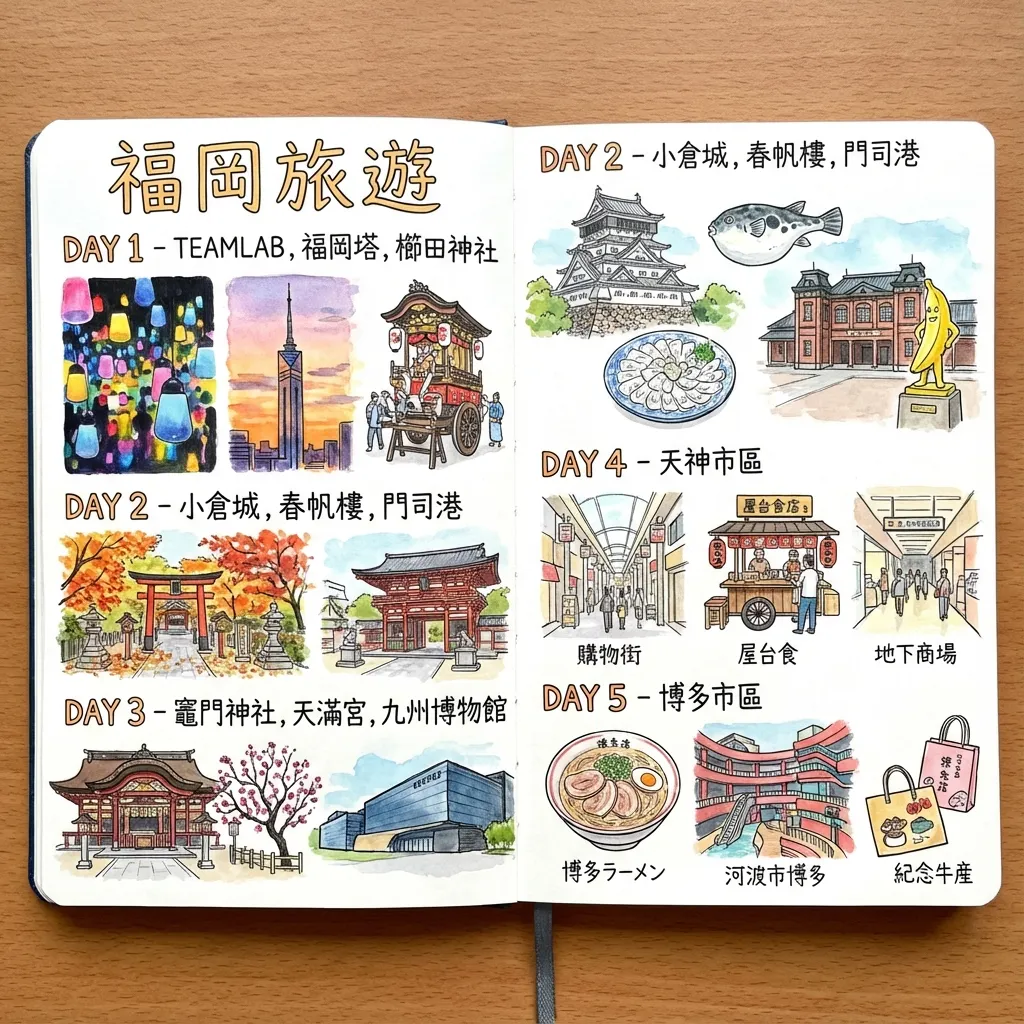 福岡旅遊
DAY 1 – TEAMLAB, 福岡塔, 櫛田神社
DAY 2 – 小倉城, 春帆樓, 門司港
DAY 3 – 竈門神社, 天滿宮, 九州博物館
DAY 2 – 小倉城, 春帆樓, 門司港
DAY 4 – 天神市區
購物街
屋台食
地下商場
DAY 5 – 博多市區
博多ラーメン
河波市博多
紀念牛産